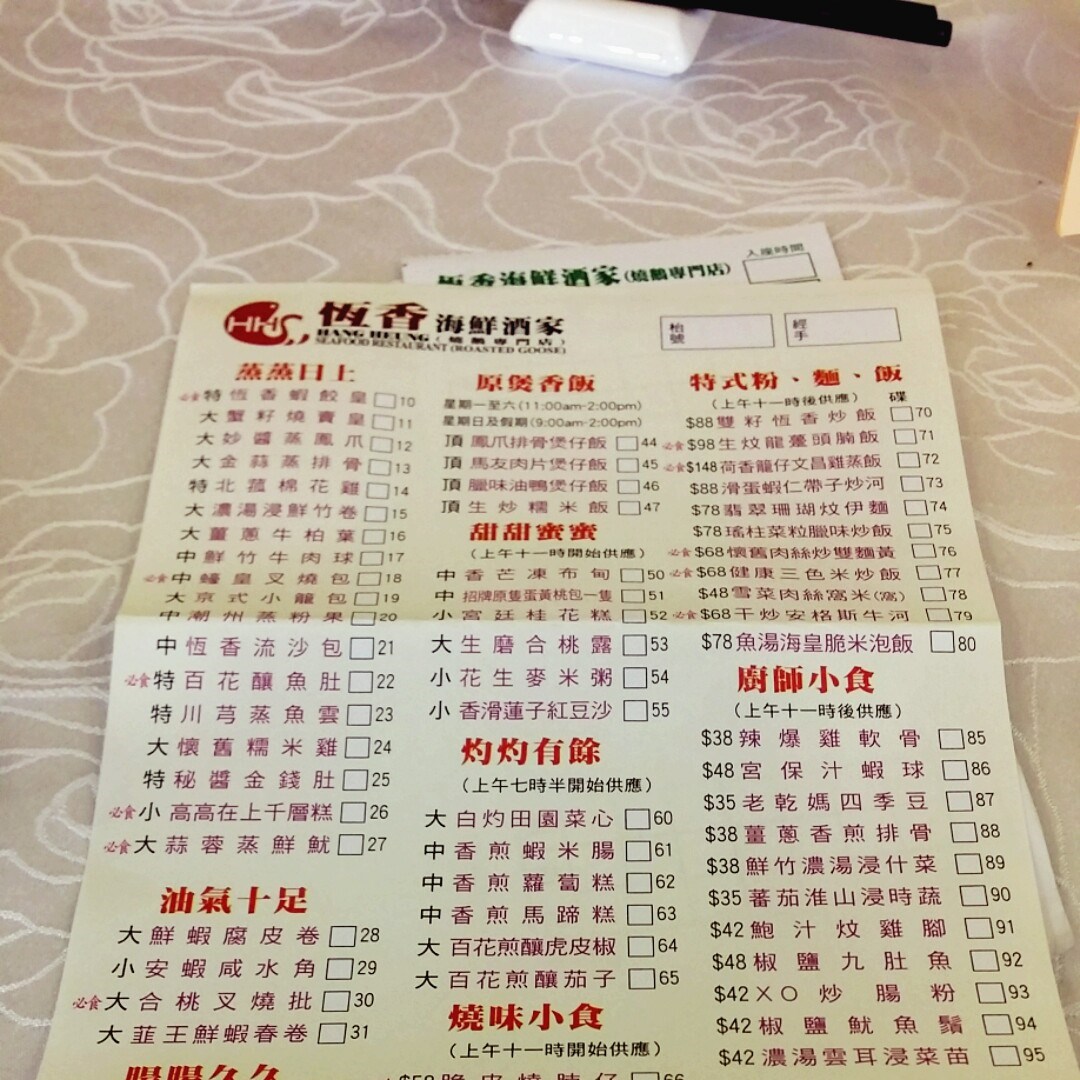 入座時間
恆香海鮮酒家(燒鵝專門店)
HHS
恆香 海鮮酒家
HANG HEUNG (燒鵝專門店)
SEAFOOD RESTAURANT (ROASTED GOOSE)
枱號
經手
蒸蒸日上
必食 特 恆香蝦餃皇 10
大 蟹籽燒賣皇 11
大 妙醬蒸鳳爪 12
大 金蒜蒸排骨 13
特 北菰棉花雞 14
大 濃湯浸鮮竹卷 15
大 薑蔥牛柏葉 16
中 鮮竹牛肉球 17
必食 中 蠔皇叉燒包 18
大 京式小籠包 19
中 潮州蒸粉果 20
中 恆香流沙包 21
必食 特 百花釀魚肚 22
特 川芎蒸魚雲 23
大 懷舊糯米雞 24
特 秘醬金錢肚 25
必食 小 高高在上千層糕 26
必食 大 蒜蓉蒸鮮魷 27
油氣十足
大 鮮蝦腐皮卷 28
小 安蝦咸水角 29
必食 大 合桃叉燒批 30
大 韮王鮮蝦春卷 31
原煲香飯
星期一至六(11:00am-2:00pm)
星期日及假期(9:00am-2:00pm)
頂 鳳爪排骨煲仔飯 44
頂 馬友肉片煲仔飯 45
頂 臘味油鴨煲仔飯 46
頂 生炒糯米飯 47
甜甜蜜蜜
(上午十一時開始供應)
中 香芒凍布甸 50
中 招牌原隻蛋黃桃包一隻 51
小 宮廷桂花糕 52
大 生磨合桃露 53
小 花生麥米粥 54
小 香滑蓮子紅豆沙 55
灼灼有餘
(上午七時半開始供應)
大 白灼田園菜心 60
中 香煎蝦米腸 61
中 香煎蘿蔔糕 62
中 香煎馬蹄糕 63
大 百花煎釀虎皮椒 64
大 百花煎釀茄子 65
燒味小食
(上午十一時開始供應)
66
特式粉、麵、飯
(上午十一時後供應) 碟
$88 雙籽恆香炒飯 70
必食 $98 生炆龍躉頭腩飯 71
必食 $148 荷香龍仔文昌雞蒸飯 72
$88 滑蛋蝦仁帶子炒河 73
$78 翡翠珊瑚炆伊麵 74
$78 瑤柱菜粒臘味炒飯 75
必食 $68 懷舊肉絲炒雙麵黃 76
必食 $68 健康三色米炒飯 77
$48 雪菜肉絲窩米(窩) 78
必食 $68 干炒安格斯牛河 79
$78 魚湯海皇脆米泡飯 80
廚師小食
(上午十一時後供應)
$38 辣爆雞軟骨 85
$48 宮保汁蝦球 86
$35 老乾媽四季豆 87
$38 薑蔥香煎排骨 88
$38 鮮竹濃湯浸什菜 89
$35 蕃茄淮山浸時蔬 90
$42 鮑汁炆雞腳 91
$48 椒鹽九肚魚 92
$42 XO炒腸粉 93
$42 椒鹽魷魚鬚 94
$42 濃湯雲耳浸菜苗 95